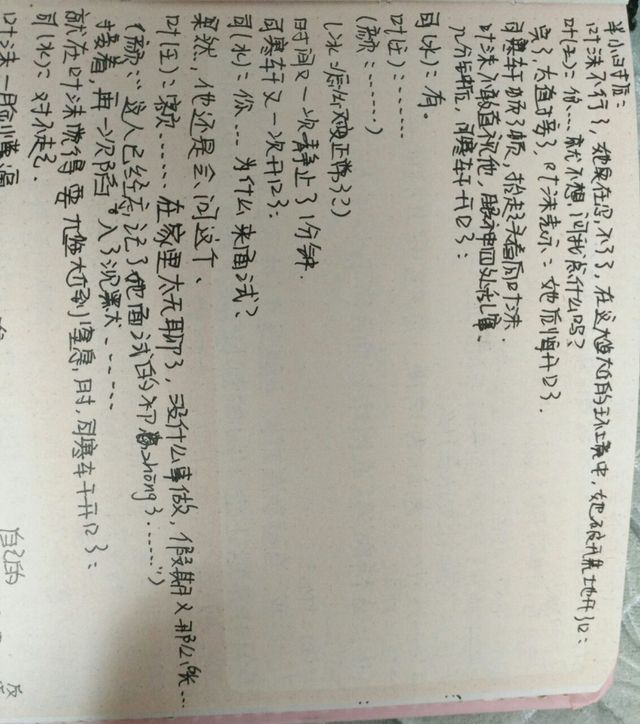 半小时后：
叶沫不行了，她现在忍不了了，在这尴尬的环境中，她破天荒地开口：
叶(主)：你…就不想问我点什么吗？
完了，太直接了，叶沫表示：她后悔开口了．
司寒轩扬了眼，抬起了头看向叶沫．
叶沫不敢直视他，眼神四处乱窜．
几分钟后，司寒轩开口了：
司(冰)：有。
叶(主)：……
(颜：……)
(冰：怎么又变正常了？)
时间又一次静止了1分钟．
司寒轩又一次开口了：
司(冰)：你…为什么来面试？
果然，他还是会问这个、
叶(主)：额……在家里太无聊了，没什么事做，假期又那么长…
(颜：…这人已经忘记了她面试的初zhōng了……")
接着，再一次陷入了沉默……
就在叶沫觉得要尴尬到窒息时，司寒轩开口了：
司(冰)：对不起．
叶沫一脸懵逼
自己的